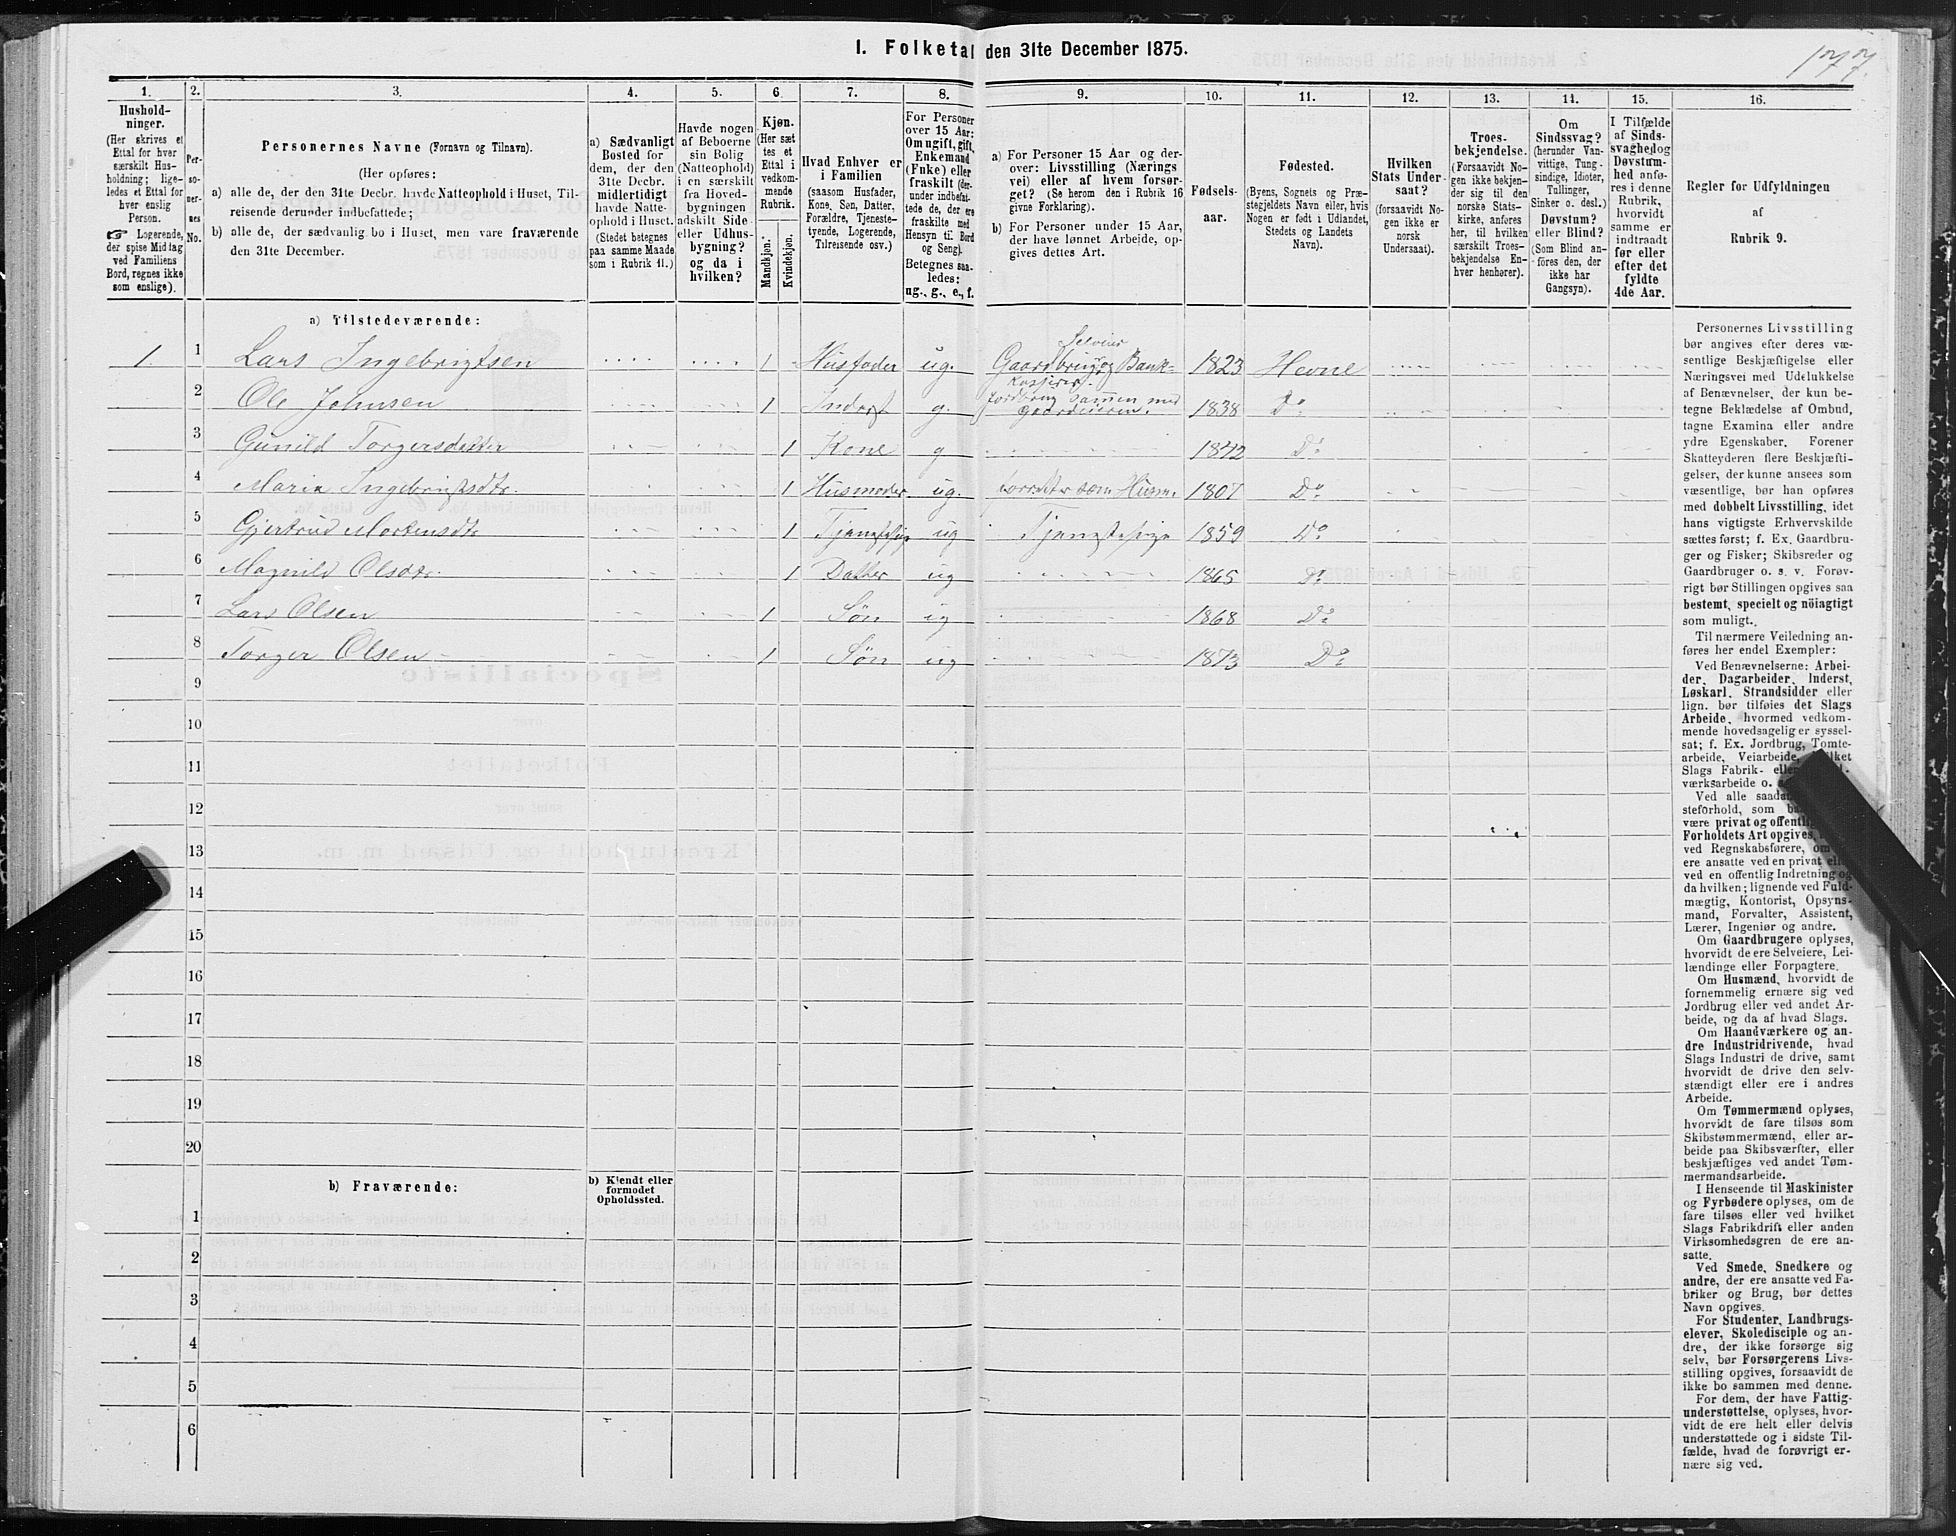 1. Folketal den 31te December 1875.
177.
1. 2. 3. 4. 5. 6. 7. 8. 9. 10. 11. 12. 13. 14. 15. 16.
Hushold-
ninger.
(Her skrives et
Ettal for hver
særskilt Hus-
holdning; lige-
ledes et Ettal for
hver enslig
Person.
☞ Logerende,
der spise Middag
ved Familiens
Bord, regnes ikke
som enslige).
Per-
so-
ner-
nes
No.
Personernes Navne (Fornavn og Tilnavn).
(Her opføres:
a) alle de, der den 31te Decbr. havde Natteophold i Huset, Til-
reisende derunder indbefattede;
b) alle de, der sædvanlig bo i Huset, men vare fraværende
den 31te December.
a) Sædvanligt
Bosted for
dem, der den
31te Decbr.
midlertidigt
havde Natte-
ophold i Huset.
(Stedet betegnes
paa samme Maade
som i Rubrik 11.)
Havde nogen
af Beboerne
sin Bolig
(Natteophold)
i en særskilt
fra Hoved-
bygningen
adskilt Side-
eller Udhus-
bygning?
og da i
hvilken?
Kjøn.
(Her sæt-
tes et
Ettal i
vedkom-
mende
Rubrik.
Mandkjøn.
Kvindekjøn.
Hvad Enhver er
i Familien
(saasom Husfader,
Kone, Søn, Datter,
Forældre, Tjeneste-
tyende, Logerende,
Tilreisende osv.)
For Personer
over 15 Aar:
Om ugift, gift,
Enkemand
(Enke) eller
fraskilt (der-
under indbefat-
tede de, der ere
fraskilte med
Hensyn til Bord
og Seng).
Betegnes saa-
ledes:
ug., g., e., f.
a) For Personer 15 Aar og der-
over: Livsstilling (Nærings
vei) eller af hvem forsør-
get? (Se herom den i Rubrik 16
givne Forklaring).
b) For Personer under 15 Aar,
der have lønnet Arbeide, op-
gives dettes Art.
Fødsels-
aar.
Fødested.
(Byens, Sognets og Præ-
stegjeldets Navn eller, hvis
Nogen er født i Udlandet,
Stedets og Landets
Navn).
Hvilken
Stats Under-
saat?
(forsaavidt No-
gen ikke er
norsk
Undersaat).
Troes-
bekjendelse.
(Forsaavidt No-
gen ikke bekjen-
der sig til den
norske Stats-
kirke, anføres
her, til hvilken
særskilt Troes-
bekjendelse En-
hver henhører).
Om
Sindssvag?
(herunder Van-
vittige, Tung-
sindige, Idioter,
Tullinger,
Sinker o. desl.)
Døvstum?
eller Blind?
(Som Blind an-
føres den, der
ikke har
Gangsyn).
I Tilfælde
af Sinds-
svaghed og
Døvstum-
hed anfø-
res i denne
Rubrik,
hvorvidt
samme er
indtraadt
før eller
efter det
fyldte
4de Aar.
Regler for Udfyldningen
af
Rubrik 9.
a) Tilstedeværende:
Selveier
1. 1 Lars Ingebrigtsen 1 Husfader ug. Gaardbruger og Bank- 1823 Hevne
kasserer.
2 Ole Johnsen 1 Inderst g. Jordbrug sammen med 1838 Do
gaardeieren.
3 Gunild Torgersdatter 1 Kone g 1842 Do
4 Maria Ingebrigtsdtr. 1 Husmoder ug. som Husm. 1807 Do
5 Gjertrud Mortensdtr 1 Tjenestepige ug Tjenestepige 1859 Do
6 Magnild Olsdtr. 1 Datter ug 1865 Do
7 Lars Olsen 1 Søn ug 1868 Do
8 Torger Olsen 1 Søn ug 1873 Do
9
10
11
12
13
14
15
16
17
18
19
20
b) Fraværende:
b) Kjendt eller
formodet
Opholdssted.
1
2
3
4
5
6
Personernes Livsstilling
bør angives efter deres væ-
sentlige Beskjæftigelse eller
Næringsvei med Udelukkelse
af Benævnelser, der kun be-
tegne Beklædelse af Ombud,
tagne Examina eller andre
ydre Egenskaber. Forener
Skatteyderen flere Beskjæfti-
gelser, der kunne ansees som
væsentlige, bør han opføres
med dobbelt Livsstilling, idet
hans vigtigste Erhvervskilde
sættes først; f. Ex. Gaardbru-
ger og Fisker; Skibsreder og
Gaardbruger o. s. v. Forøv-
rigt bør Stillingen opgives saa
bestemt, specielt og nöiagtigt
som muligt.
Til nærmere Veiledning an-
føres her endel Exempler:
Ved Benævnelserne: Arbei-
der, Dagarbeider, Inderst,
Løskarl, Strandsidder eller
lign. bør tilføies det Slags
Arbeide, hvormed vedkom-
mende hovedsagelig er syssel-
sat; f. Ex. Jordbrug, Tomte-
arbeide, Veiarbeide,
Slags Fabrik-
værksarbeide o.
Ved alle
steforhold, som
være privat og
Forholdets Art opgives,
ved Regnskabsførere,
ere ansatte ved en privat
ved en offentlig Indretning og
da hvilken; lignende ved Fuld-
mægtig, Kontorist, Opsyns-
mand, Forvalter, Assistent,
Lærer, Ingeniør og andre.
Om Gaardbrugere oplyses,
hvorvidt de ere Selveiere, Lei-
lændinge eller Forpagtere.
Om Husmænd, hvorvidt de
fornemmelig ernære sig ved
Jordbrug eller ved andet Ar-
beide, og da af hvad Slags.
Om Haandværkere og an-
dre Industridrivende, hvad
Slags Industri de drive, samt
hvorvidt de drive den selv-
stændigt eller ere i andres
Arbeide.
Om Tømmermænd oplyses,
hvorvidt de fare tilsøs som
Skibstømmermænd, eller ar-
beide paa Skibsværfter, eller
beskjæftiges ved andet Tøm-
mermandsarbeide.
I Henseende til Maskinister
og Fyrbødere oplyses, om de
fare tilsøs eller ved hvilket
Slags Fabrikdrift eller anden
Virksomhedsgren de ere an-
satte.
Ved Smede, Snedkere og
andre, der ere ansatte ved Fa-
briker og Brug, bør dettes
Navn opgives.
For Studenter, Landbrugs-
elever, Skoledisciple og an-
dre, der ikke forsørge sig
selv, bør Forsørgerens Livs-
stilling opgives, forsaavidt de
ikke bo sammen med denne.
For dem, der have Fattig-
understøttelse, oplyses, hvor-
vidt de ere helt eller delvis
understøttede og i sidste Til-
fælde, hvad de forøvrigt er-
nære sig ved.